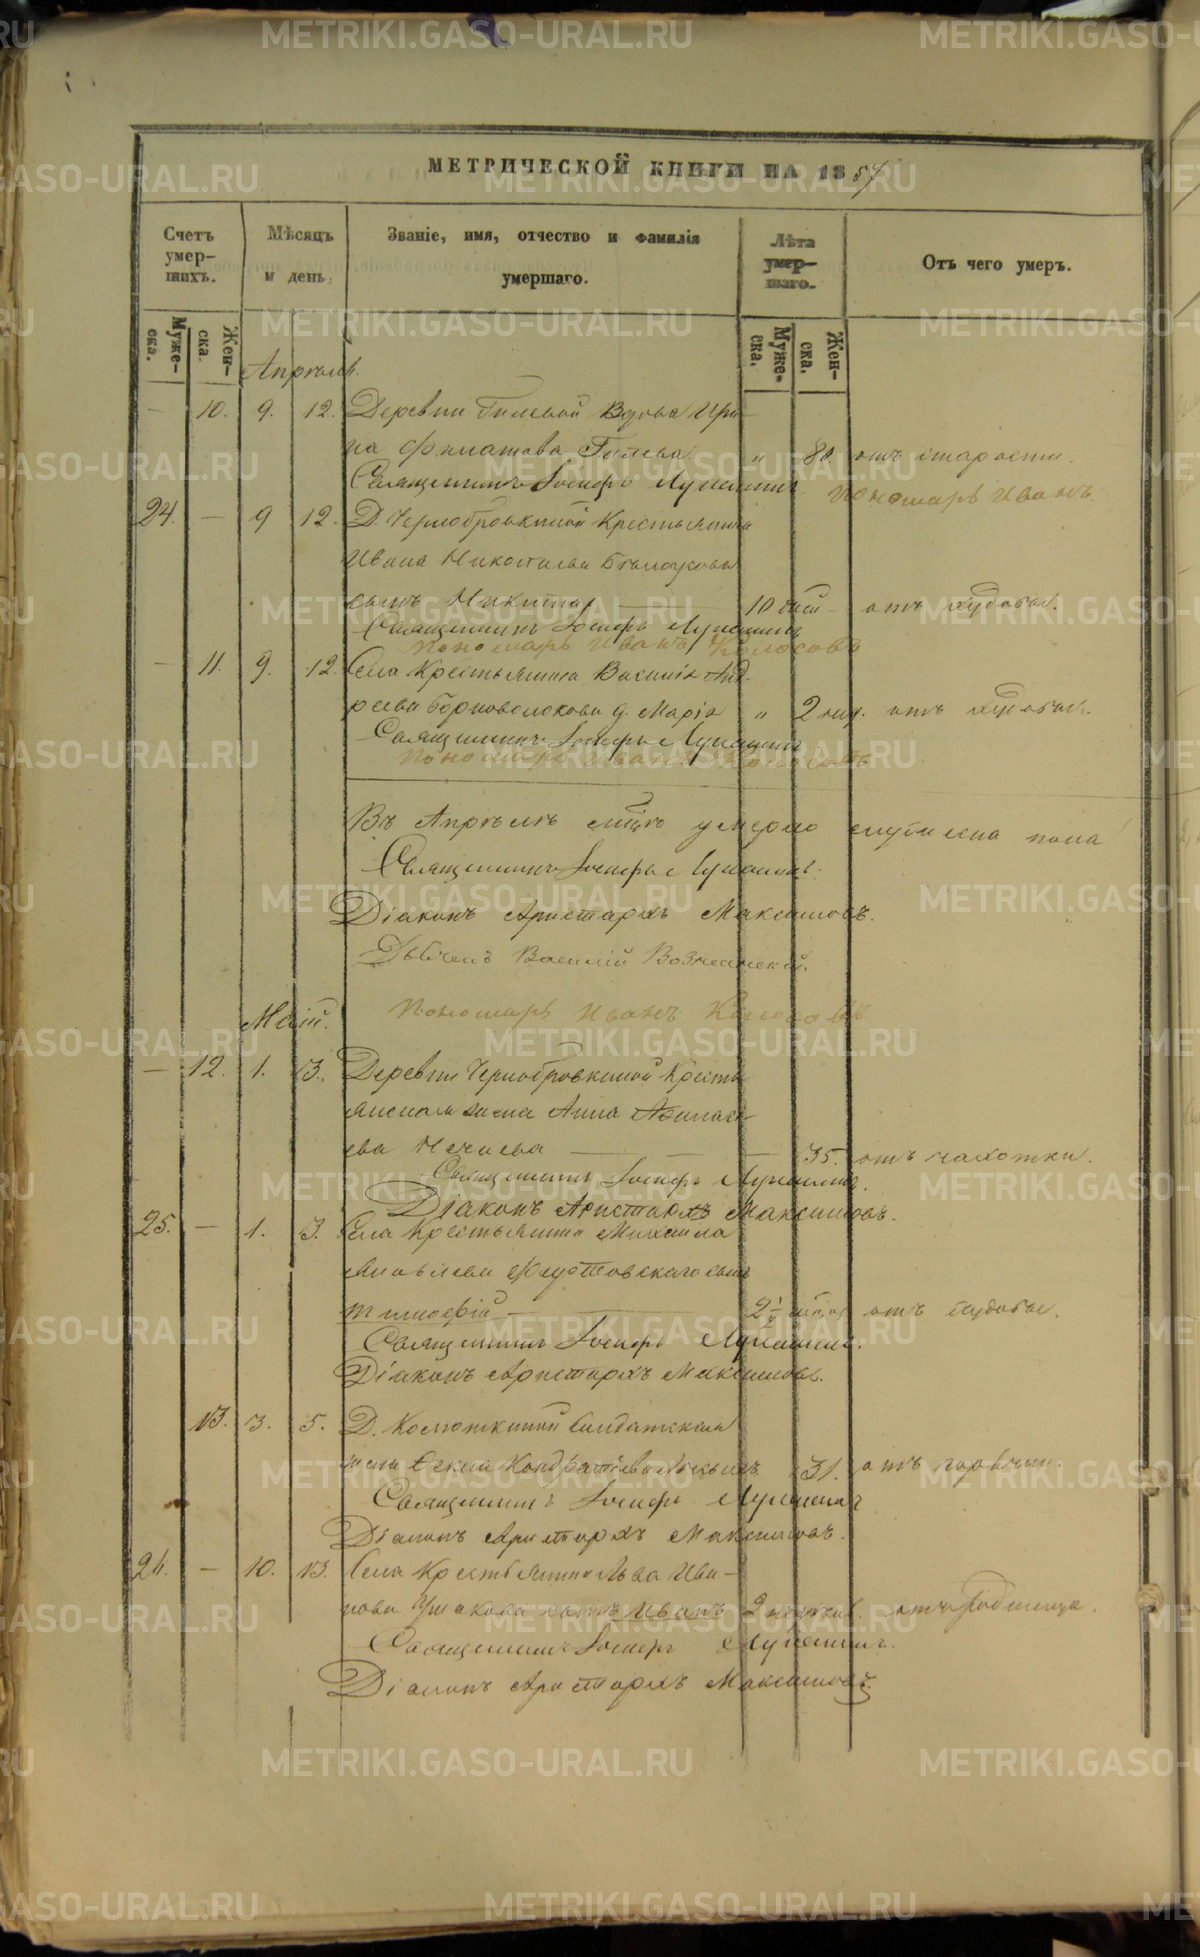 МЕТРИЧЕСКОЙ КНИГИ НА 1857
Счетъ умер-шихъ.
Мѣсяцъ и день.
Званіе, имя, отчество и фамилія умершаго.
Лѣта умер-шаго.
Отъ чего умеръ.
Муже-ска.
Жен-ска.
Муже-ска.
Жен-ска.
Апрѣль.
— 10. 9. 12. Деревни Гилевой Вдова Ири-
на Филатова Гилева. „ 80. отъ старости.
Священникъ Іосифъ Лукашинъ Пономарь Иванъ
24. — 9 12. Д. Чернобровкиной Крестьянина
Ивана Николаева
сынъ Никита 10 дней отъ худобы.
Священникъ Іосифъ Лукашинъ
Пономарь Иванъ Колосовъ
— 11. 9. 12. Села Крестьянина Василія Анд-
реева Горноволокова д. Марія „ 2 нед. отъ худобы.
Священникъ Іосифъ Лукашинъ
Пономарь Иванъ Колосовъ
Въ Апрѣлѣ умерло пола
Священникъ Іосифъ Лукашинъ.
Діаконъ Аристархъ Максимовъ.
Дьячекъ Василій Вознесенскій.
Пономарь Иванъ Колосовъ
Май.
— 12. 1. 3. Деревни Чернобровкиной Кресть-
янская жена Анна Афанась-
ева Нечаева — — 35. отъ чахотки.
Священникъ Іосифъ Лукашинъ.
Діаконъ Аристархъ Максимовъ.
25. — 1. 3. Села Крестьянина Михаила
Яковлева сынъ
Тимофей — 2½ отъ худобы.
Священникъ Іосифъ Лукашинъ.
Діаконъ Аристархъ Максимовъ.
13. 3. 5. Д. Колюткиной Солдатская
жена Кондратьева 31. отъ горячки.
Священникъ Іосифъ Лукашинъ
Діаконъ Аристархъ Максимовъ.
26. — 10. 13. Села Крестьянина Льва Ива-
нова Ушакова сынъ Иванъ 2 отъ родимца.
Священникъ Іосифъ Лукашинъ.
Діаконъ Аристархъ Максимовъ.
METRIKI.GASO-URAL.RU